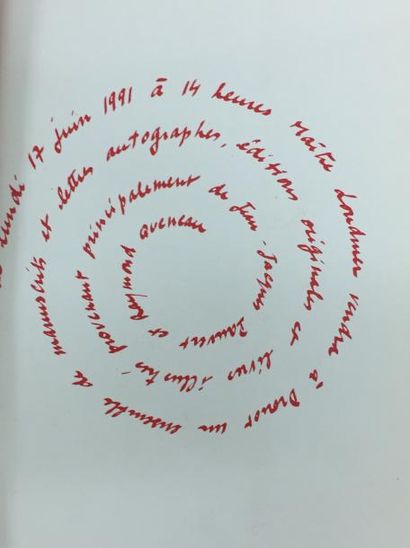 Le lundi 17 juin 1991 à 14 heures Maître Loudmer vendra à Drouot un ensemble de manuscrits et lettres autographes, éditions originales et livres illustrés provenant principalement de Jean-Jacques Pauvert et Raymond Queneau